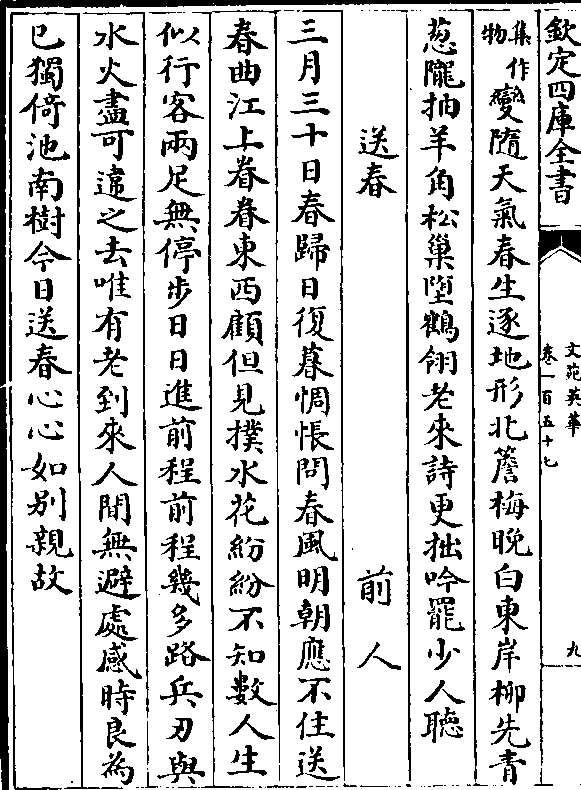 欽定四庫全書
文苑英華
卷一百五十七
九
集作物變隨天氣春生逐地形北簷梅晚白東岸柳先青
葱隴抽羊角松巢墮鶴翎老來詩更拙吟罷少人聴
送春 前人
三月三十日春歸日復暮惆悵問春風明朝應不住送
春曲江上眷眷東西顧但見撲水花紛紛不知數人生
似行客兩足無停步日日進前程前程幾多路兵刃與
水火盡可違之去唯有老到來人間無避處感時良為
已獨倚池南樹今日送春心心如别親故